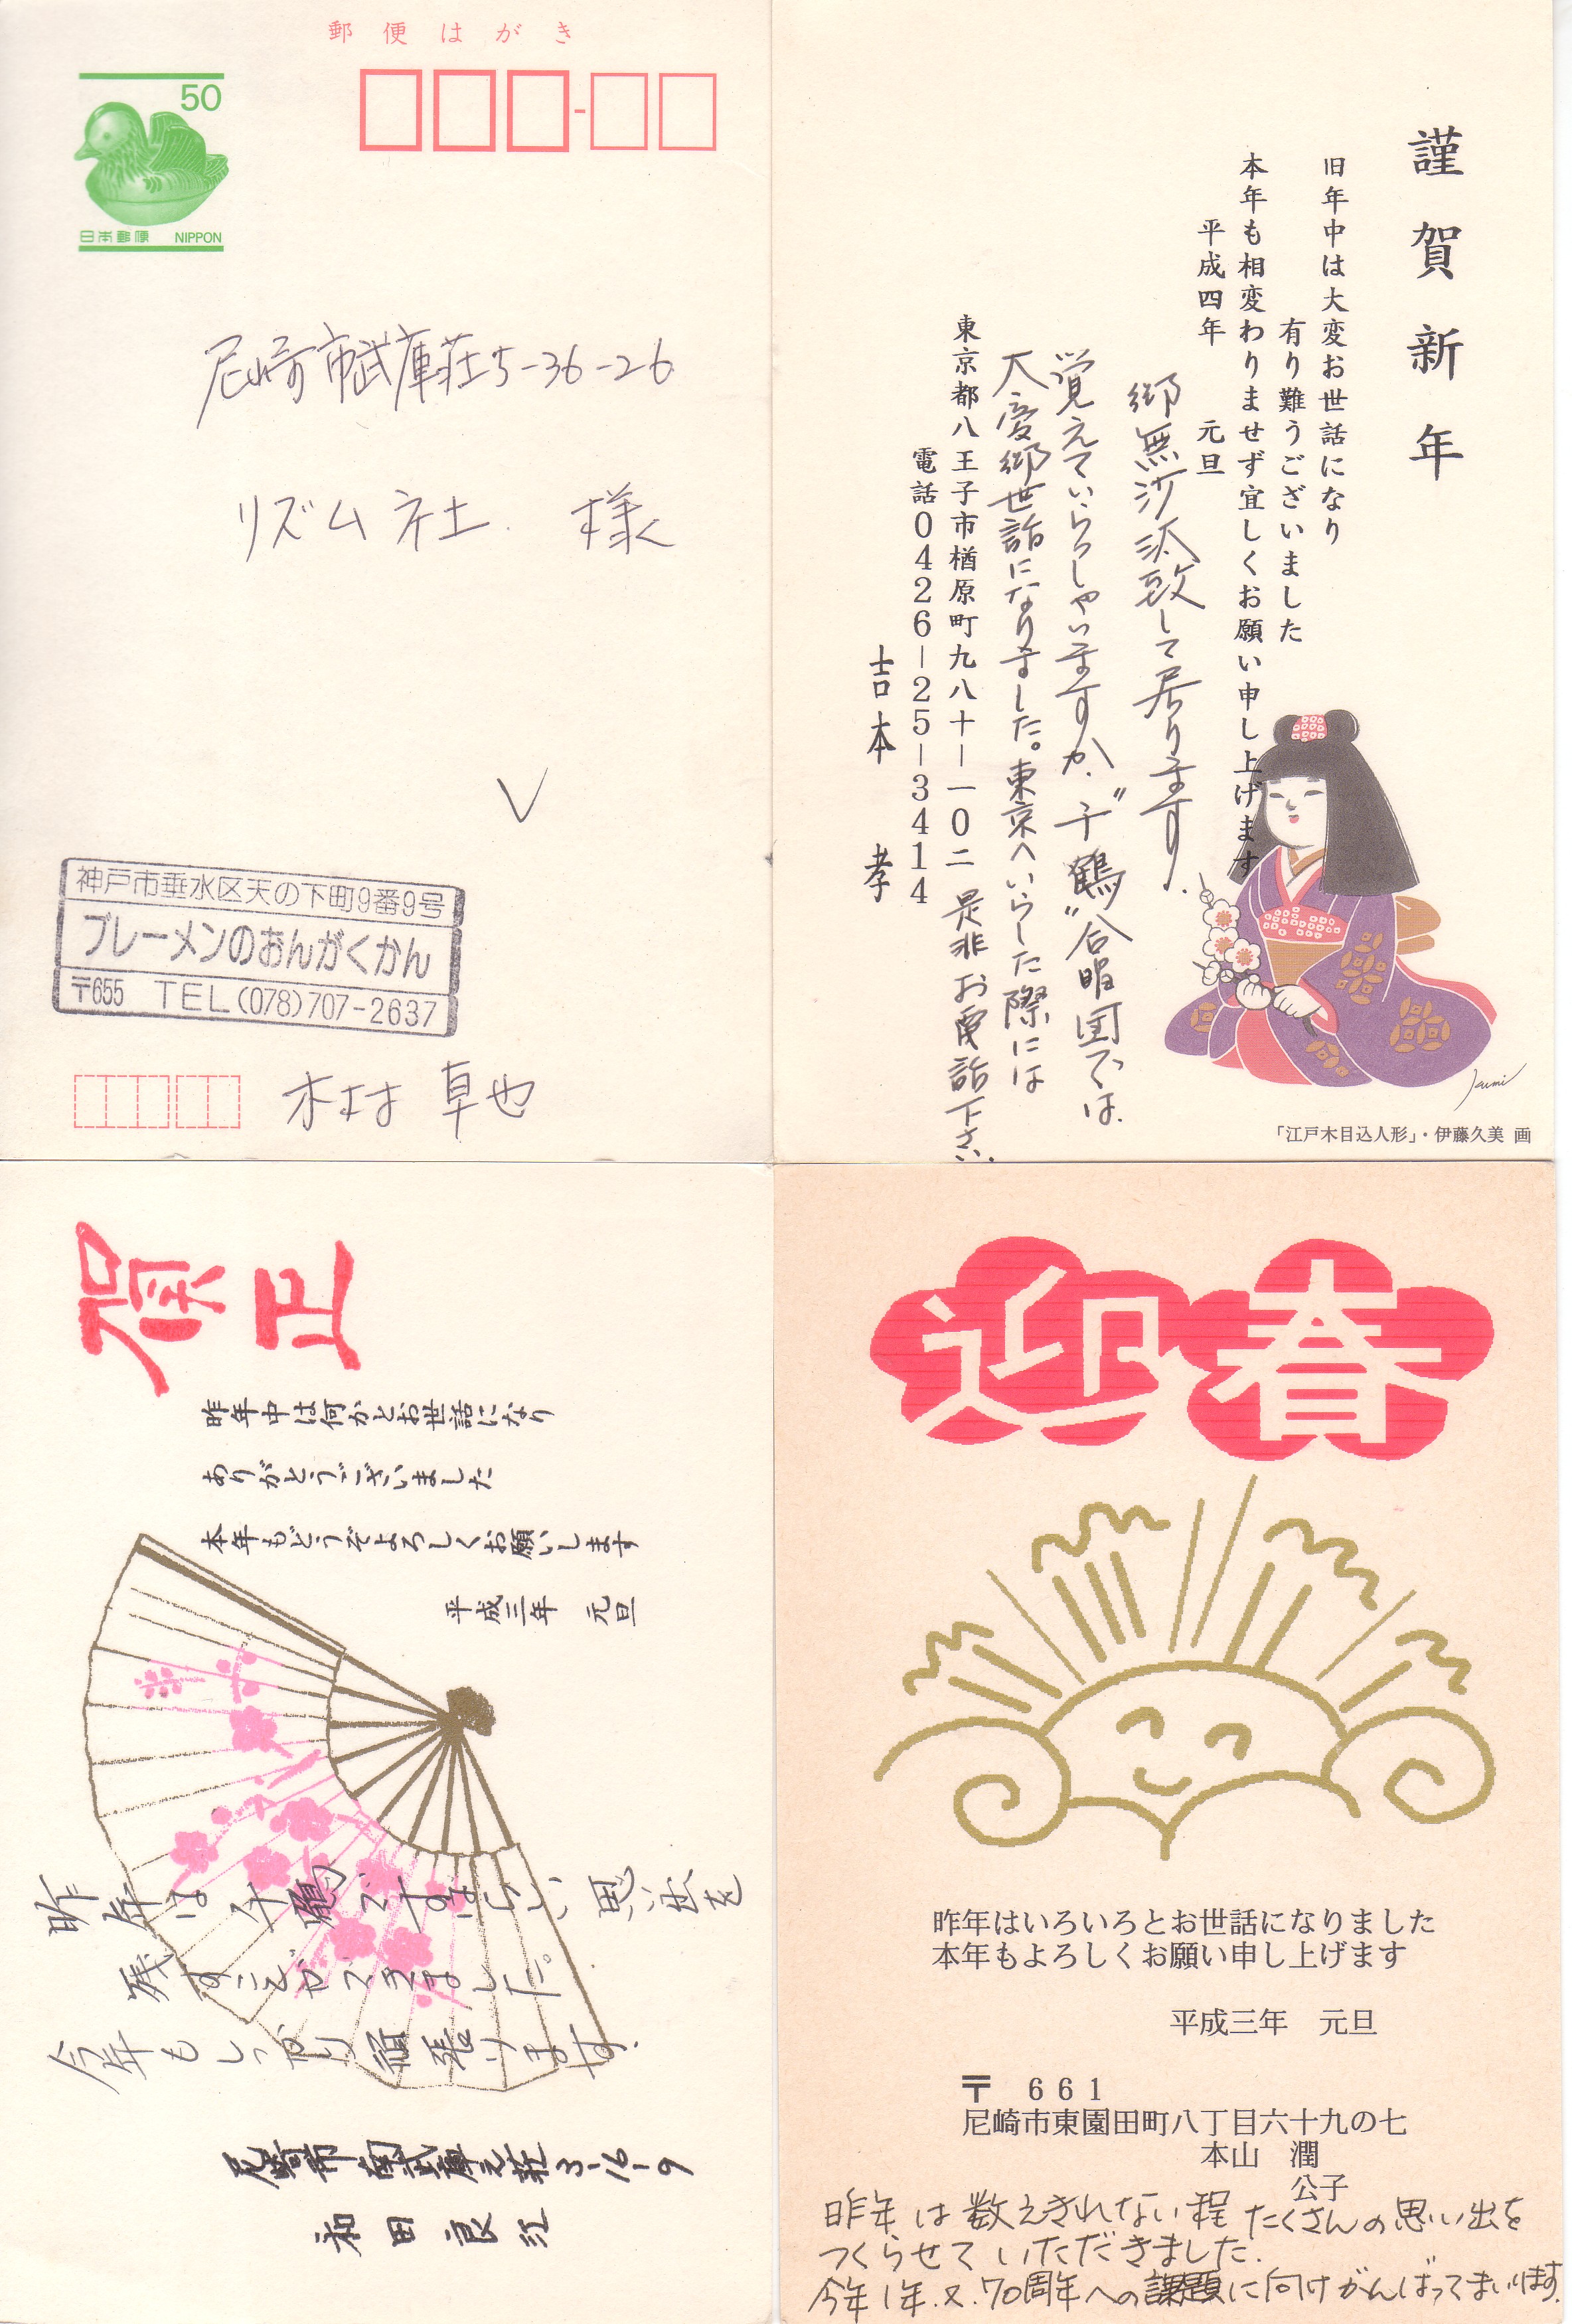 郵便はがき
50
日本郵便 NIPPON
尼崎市武庫荘5-36-26
リズム社. 様
神戸市垂水区天の下町9番9号
ブレーメンのおんがくかん
〒655 TEL(078)707-2637
木村 卓也
謹賀新年
旧年中は大変お世話になり
有り難うございました
本年も相変わりませず宜しくお願い申し上げます
平成四年 元旦
御無沙汰致して居ります.
覚えていらっしゃいますか.〝千鶴〟合唱団では.
大変御世話になりました。東京へいらした際には
是非お電話下さい.
東京都八王子市楢原町九八十ー一0二
電話0426ー25ー3414
吉本 孝
Izumi
「江戸木目込人形」・伊藤久美 画
賀正
昨年中は何かとお世話になり
ありがとうございました
本年もどうぞよろしくお願いします
平成三年 元旦
昨年は千鶴ですばらしい思い出を
残すことができました。
今年もしっかり頑張ります.
尼崎市南武庫之荘3-16-9
和田良江
迎春
昨年はいろいろとお世話になりました
本年もよろしくお願い申し上げます
平成三年 元旦
〒 661
尼崎市東園田町八丁目六十九の七
本山 潤
公子
昨年は数えきれない程たくさんの思い出を
つくらせていただきました.
今年1年.又.70周年への課題に向けがんばってまいります.